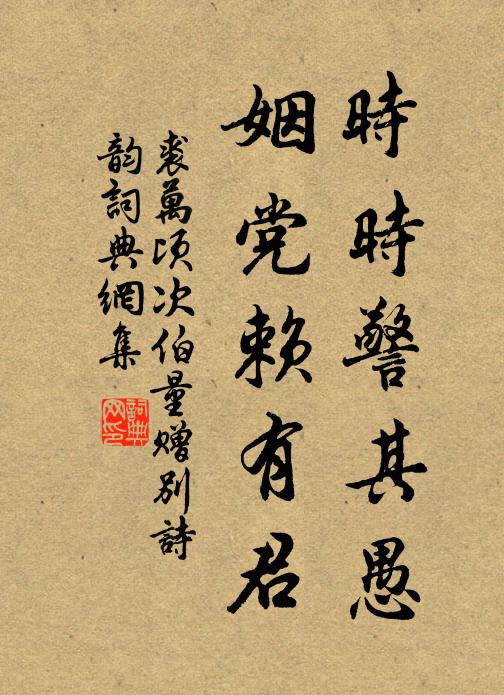 時時警其愚
姻党賴有君
裘萬頃次伯量贈別詩
韵詞典網集
詞典
网印